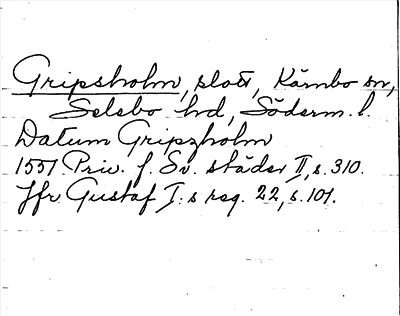 Gripsholm, slott, Kärnbo sn,
Selebo hd, Söderm. l.
Datum Gripzholm
1551 Priv. f. Sv. städer II, s. 310.
Jfr Gustaf I:s reg. 22, s. 101.